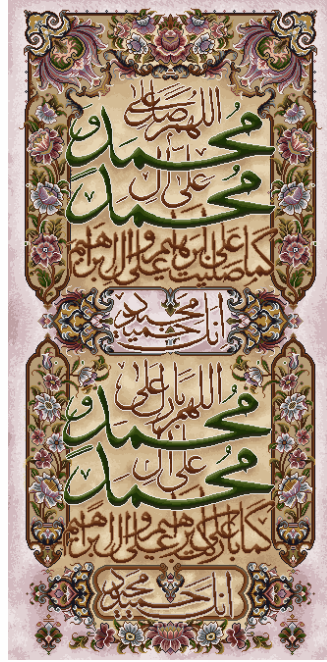 اللهم صل على
محمد و
على آل
محمد
كما صليت على إبراهيم وعلى آل إبراهيم
إنك حميد مجيد
اللهم بارك على
محمد و
على آل
محمد
كما باركت على إبراهيم وعلى آل إبراهيم
إنك حميد مجيد